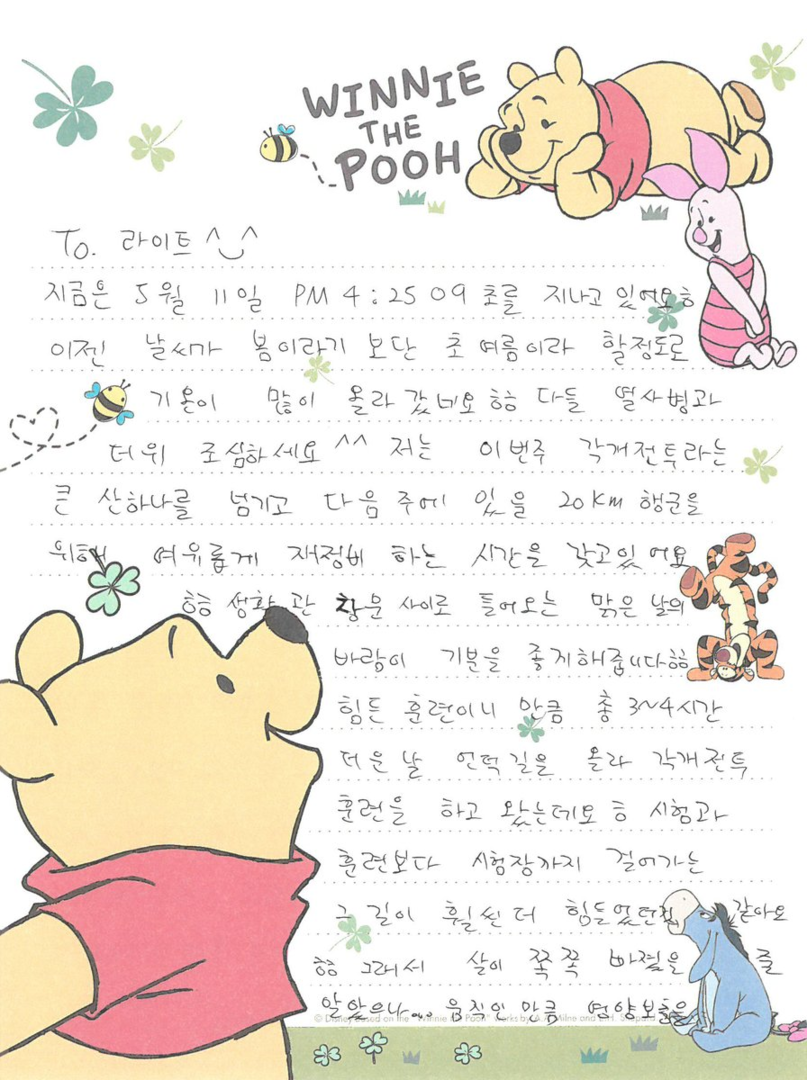 WINNIE
THE
POOH
To. 라이트 ^‿^
지금은 5월 11일 PM 4:25 09초를 지나고 있어요ㅎ
이젠 날씨가 봄이라기 보단 초여름이라 할정도로
기온이 많이 올라갔네요 ㅎㅎ 다들 열사병과
더위 조심하세요 ^^ 저는 이번주 각개전투라는
큰 산하나를 넘기고 다음주에 있을 20km 행군을
위해 여유롭게 재정비 하는 시간을 갖고있어요
ㅎㅎ 생활관 창문 사이로 들어오는 맑은 날의
바람이 기분을 좋게해줍니다ㅎㅎ
힘든 훈련이니 만큼 총 3~4시간
더운 날 언덕길을 올라 각개전투
훈련을 하고 왔는데요 ㅎ 시험과
훈련보다 시험장까지 걸어가는
그 길이 훨씬 더 힘들었던것 같아요
ㅎㅎ 그래서 살이 쪽쪽 빠졌을 줄
알았으나... 움직인 만큼 영양보충을
© Disney Based on the "Winnie the Pooh" works by A.A. Milne and E.H. Shepard